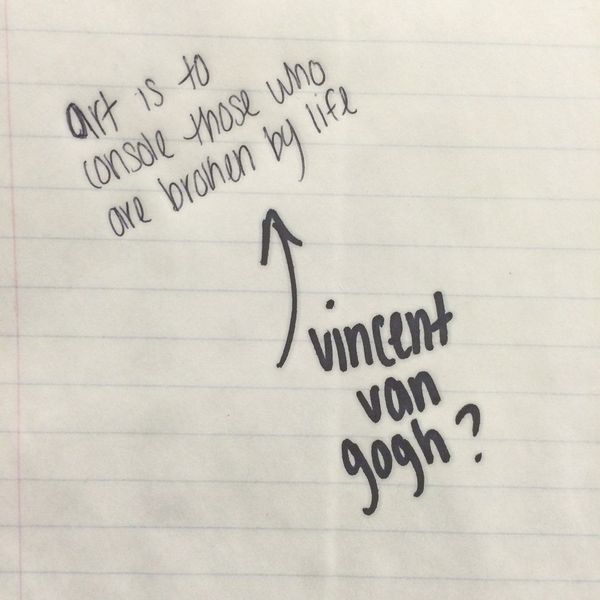 art is to
console those who
are broken by life
vincent
van
gogh?